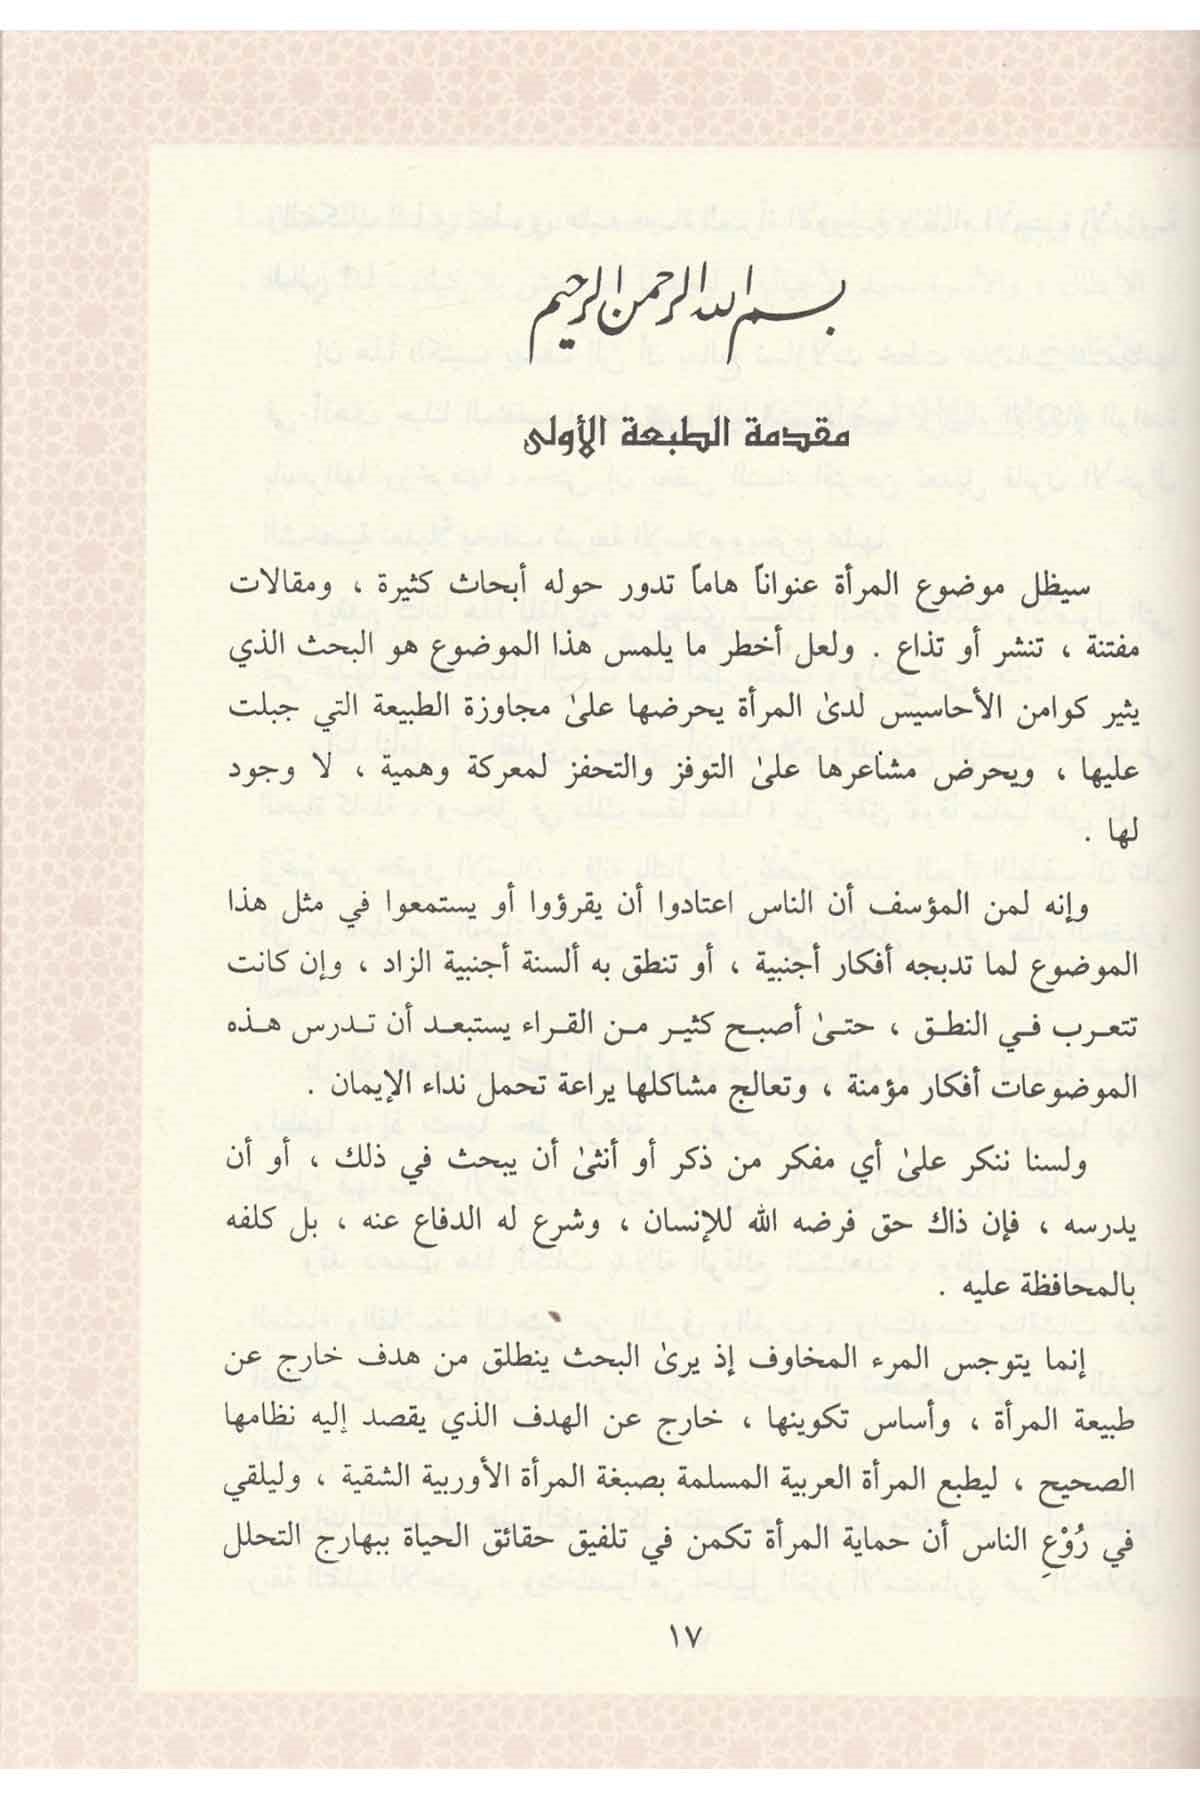 بسم الله الرحمن الرحيم
مقدمة الطبعة الأولى
سيظل موضوع المرأة عنواناً هاماً تدور حوله أبحاث كثيرة ، ومقالات
مفتنة ، تنشر أو تذاع . ولعل أخطر ما يلمس هذا الموضوع هو البحث الذي
يثير كوامن الأحاسيس لدىٰ المرأة يحرضها علىٰ مجاوزة الطبيعة التي جبلت
عليها ، ويحرض مشاعرها علىٰ التوفز والتحفز لمعركة وهمية ، لا وجود
لها .
وإنه لمن المؤسف أن الناس اعتادوا أن يقرؤوا أو يستمعوا في مثل هذا
الموضوع لما تدبجه أفكار أجنبية ، أو تنطق به ألسنة أجنبية الزاد ، وإن كانت
تتعرب في النطق ، حتىٰ أصبح كثير من القراء يستبعد أن تدرس هذه
الموضوعات أفكار مؤمنة ، وتعالج مشاكلها يراعة تحمل نداء الإيمان .
ولسنا ننكر علىٰ أي مفكر من ذكر أو أنثىٰ أن يبحث في ذلك ، أو أن
يدرسه ، فإن ذاك حق فرضه الله للإنسان ، وشرع له الدفاع عنه ، بل كلفه
بالمحافظة عليه .
إنما يتوجس المرء المخاوف إذ يرىٰ البحث ينطلق من هدف خارج عن
طبيعة المرأة ، وأساس تكوينها ، خارج عن الهدف الذي يقصد إليه نظامها
الصحيح ، ليطبع المرأة العربية المسلمة بصبغة المرأة الأوربية الشقية ، وليلقي
في رُوْعِ الناس أن حماية المرأة تكمن في تلفيق حقائق الحياة ببهارج التحلل
١٧